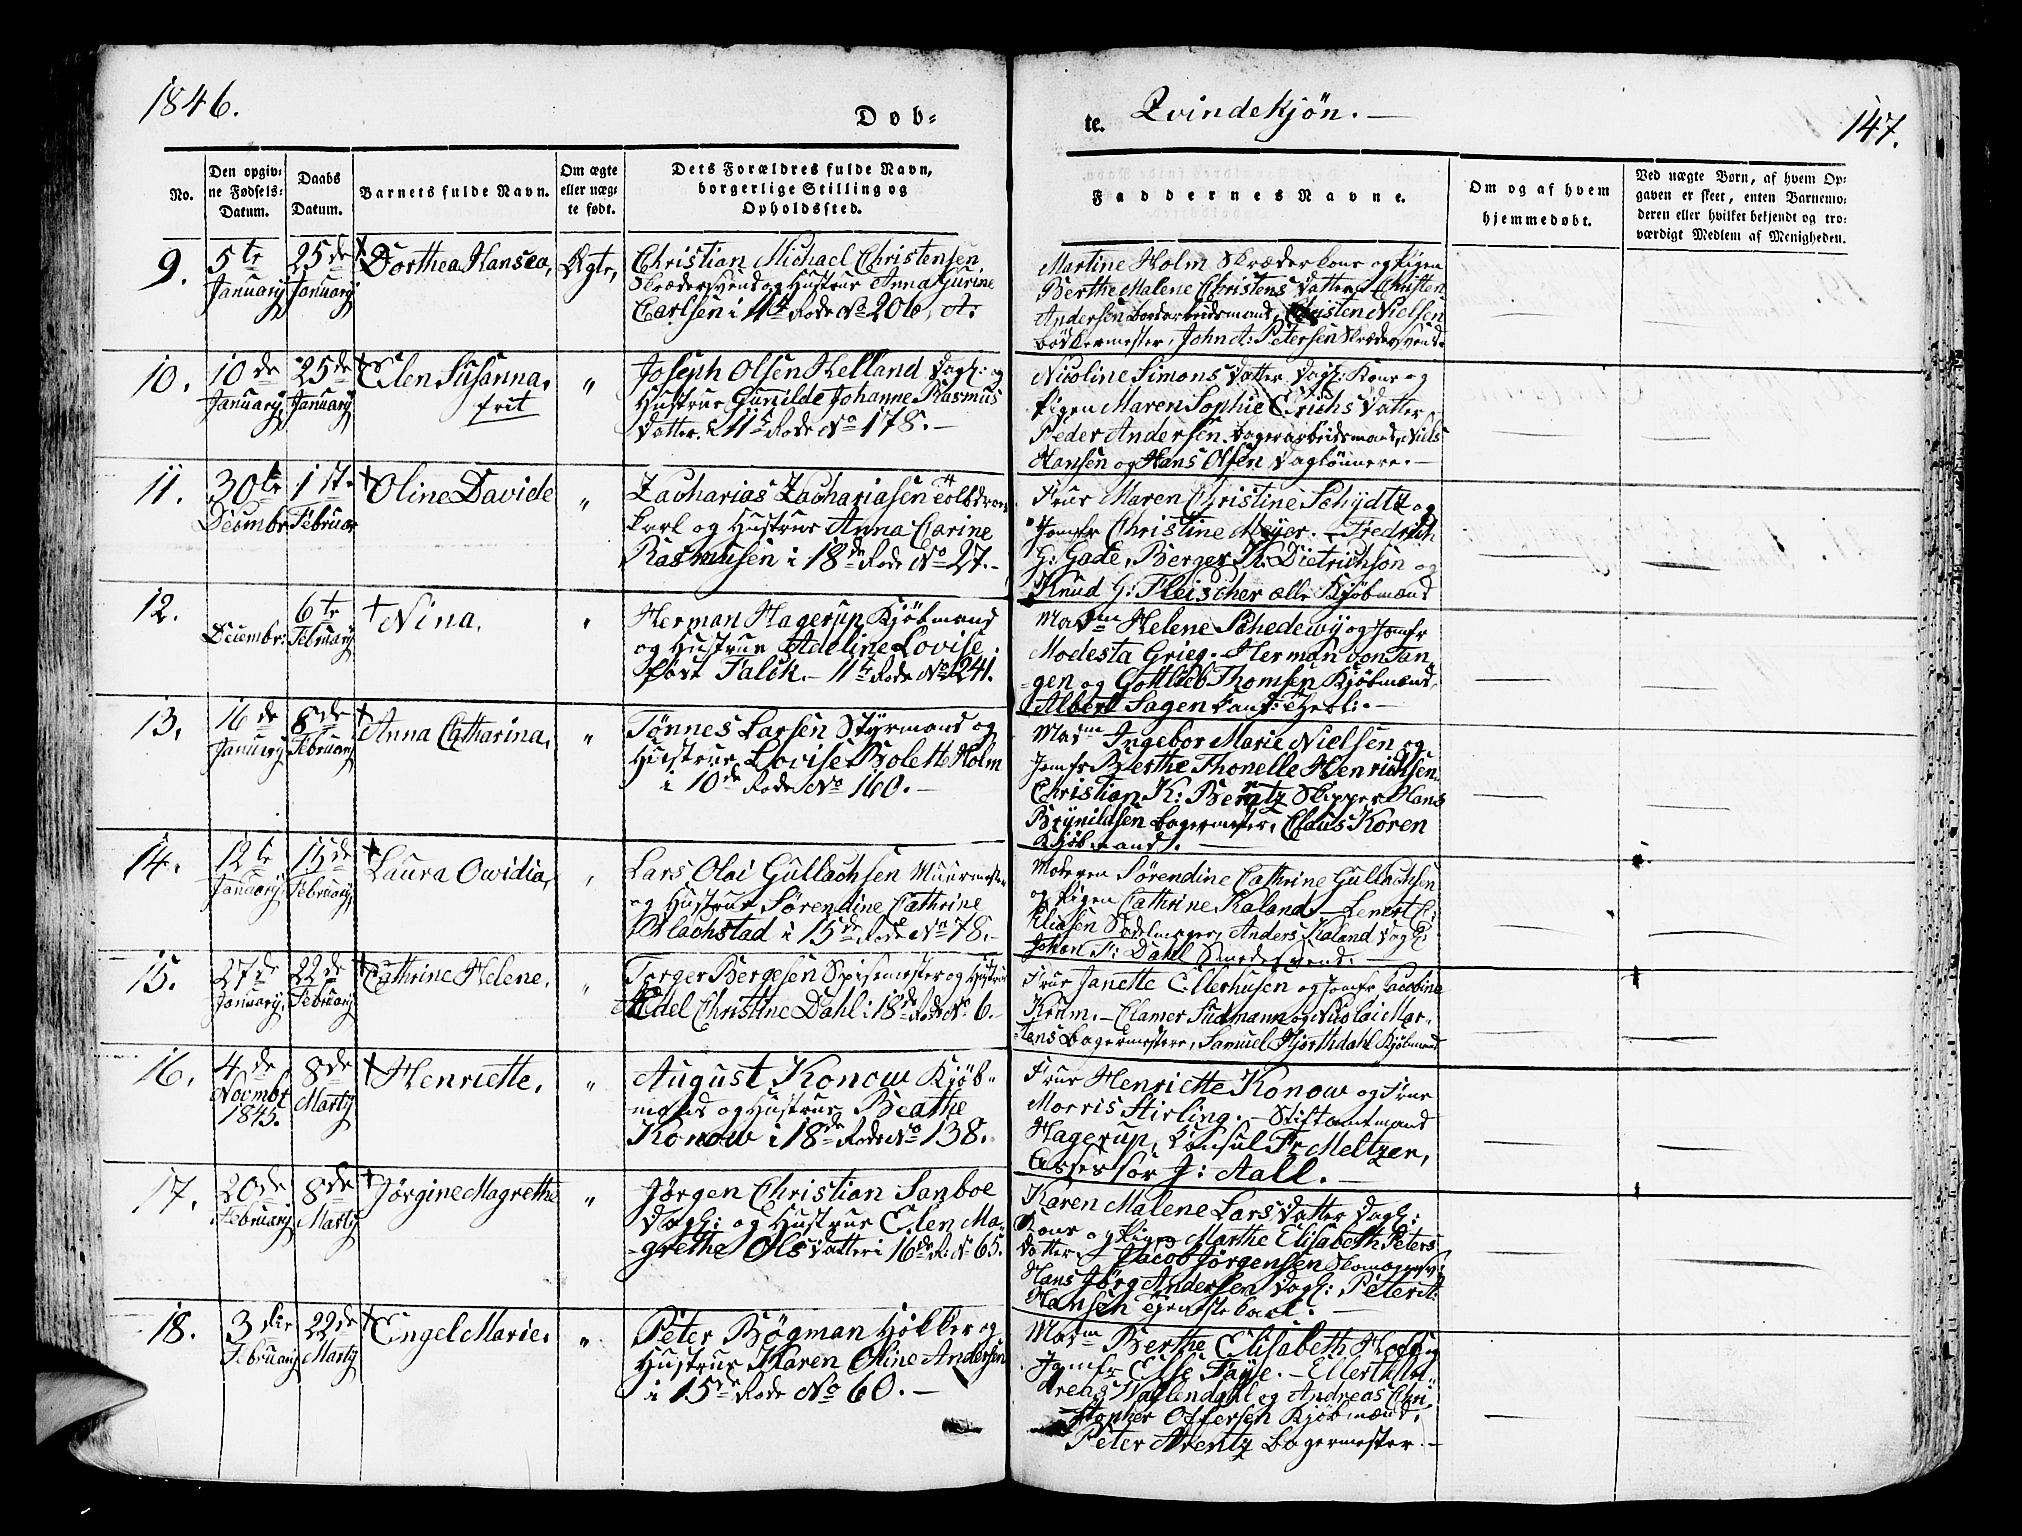 1846.
Døb-
te.
Qvindekjøn. —
147.
No.
Den opgiv-
ne Fødsels-
Datum.
Daabs
Datum.
Barnets fulde Navn.
Om ægte
eller uæg-
te født.
Dets Forældres fulde Navn,
borgerlige Stilling og
Opholdssted.
Faddernes Navne.
Om og af hvem
hjemmedøbt.
Ved uægte Børn, af hvem Op-
gaven er skeet, enten Barnemo-
deren eller hvilket bekjendt og tro-
værdigt Medlem af Menigheden.
9.
5te
January
25de
January
† Dorthea Hansea,
Ægte,
Christian Michael Christensen
Skrædersvend og Hustrue Anna Gurine
Carlsen i 11te Rode No 206, A.
Martine Holm Skræderkone og Pigen
Berthe Malene Christensdatter, Christen
Andersen Arbeidsmand, Christen Nielsen
Bødkermester, John A: Petersen Skrædersvend.
10.
10de
January
25de
January
† Elen Susanna,
frit
"
Joseph Olsen Helland Dagl: og
Hustrue Gunnilde Johanne Rasmus
Datter. i 11te Rode No 178. —
Nicoline Simonsdatter Dagl: Kone og
Pigen Maren Sophie Erichsdatter
Peder Andersen Bagerarbeidsmand, Niels
Hansen og Hans Olsen Dagлønnere. —
11.
30te
Decembr
1ste
Februar
† Oline Davide
"
Zacharias Zachariasen Toldbds
karl og Hustrue Anna Carine
Rasmussen i 18de Rode No 27. —
Frue Maren Christine Schydtz og
Jomfr Christine Meyer. — Fredrich
G: Gade, Berger K: Dietrichson og
Knud G: Fleischer alle Kjøbmænd
12.
Decembr:
6te
February
† Nina,
"
Herman Hagerup Kjøbmand
og Hustrue Adeline Lovise
født Falck. — 11te Rode No 241.
Madme Helene Schedewy og Jomfr
Modesta Grieg. — Herman von Tan-
gen og Gottlieb Thomsen Kjøbmænd,
Albert Sagen
13.
16de
January
8de
February
† Anna Catharina,
"
Tønnes Larsen Styrmand og
Hustrue Lovise Bolette Holm
i 10de Rode No 160. —
Madme Ingebor Marie Nielsen og
Jomfr Berthe Thonelle Henrichsen.
Christian K: Berntz Skipper Hans
Brynildsen Bagermester, Claus Koren
Kjøbmand. —
14.
12te
January
15de
February
† Laura Ovidia,
"
Lars Olai Gullachsen Muurmester
og Hustrue Sørendine Cathrine
Blachstad i 15de Rode No 78. —
Moderen Sørendine Cathrine Gullachsen
og Pigen Cathrine Kaland. — Lenert E:
Eliasen Sadelmager, Anders Kaland Dagl:
Johan F: Dahl Smedesvend. —
15.
27de
January
22de
February
† Cathrine Helene,
"
Torger Bergesen Spisemester og Hustrue
Edel Christine Dahl i 18de Rode No 6. —
Frue Janette Ellerhusen og Jomfr Jacobine
Krum. — Clamer Sudmann og Nicolai Mar-
tens Bagermestere, Samuel Hjorthdahl Kjøbmand
16.
4de
Novembr
1845.
8de
Marty
† Henriette,
"
August Konow Kjøb-
mand og Hustrue Beathe
Konow i 18de Rode No 138.
Frue Henriette Konow og Frue
Morris Stirling. — Stiftamtmand
Hagerup, Consul Fr: Meltzer,
Assessor J: Aall. —
17.
20de
February
8de
Marty
† Jørgine Magrethe
"
Jørgen Christian Sanboe
Dagl: og Hustrue Elen Ma-
grethe Olsdatter i 16de R. No 65.
Karen Malene Larsdatter Dagl:
Kone og Pigen Marthe Elisabeth Peters
datter, Jacob Jørgensen Skomagersv:
Hans Jørg Andersen Dagl: Peter A:
Hansen Tjenestekarl. —
18.
3die
February
22de
Marty
† Engel Marie,
"
Peter Bøgman Høkker og
Hustrue Karen Oline Andersen
i 15de Rode No 60. —
Madme Berthe Elisabeth Hoff og
Jomfr Else Faye. — Ellert
Wallendahl og Andreas Chri-
stopher Offersen Kjøbmænd,
Peter Arentz Bagermester. —